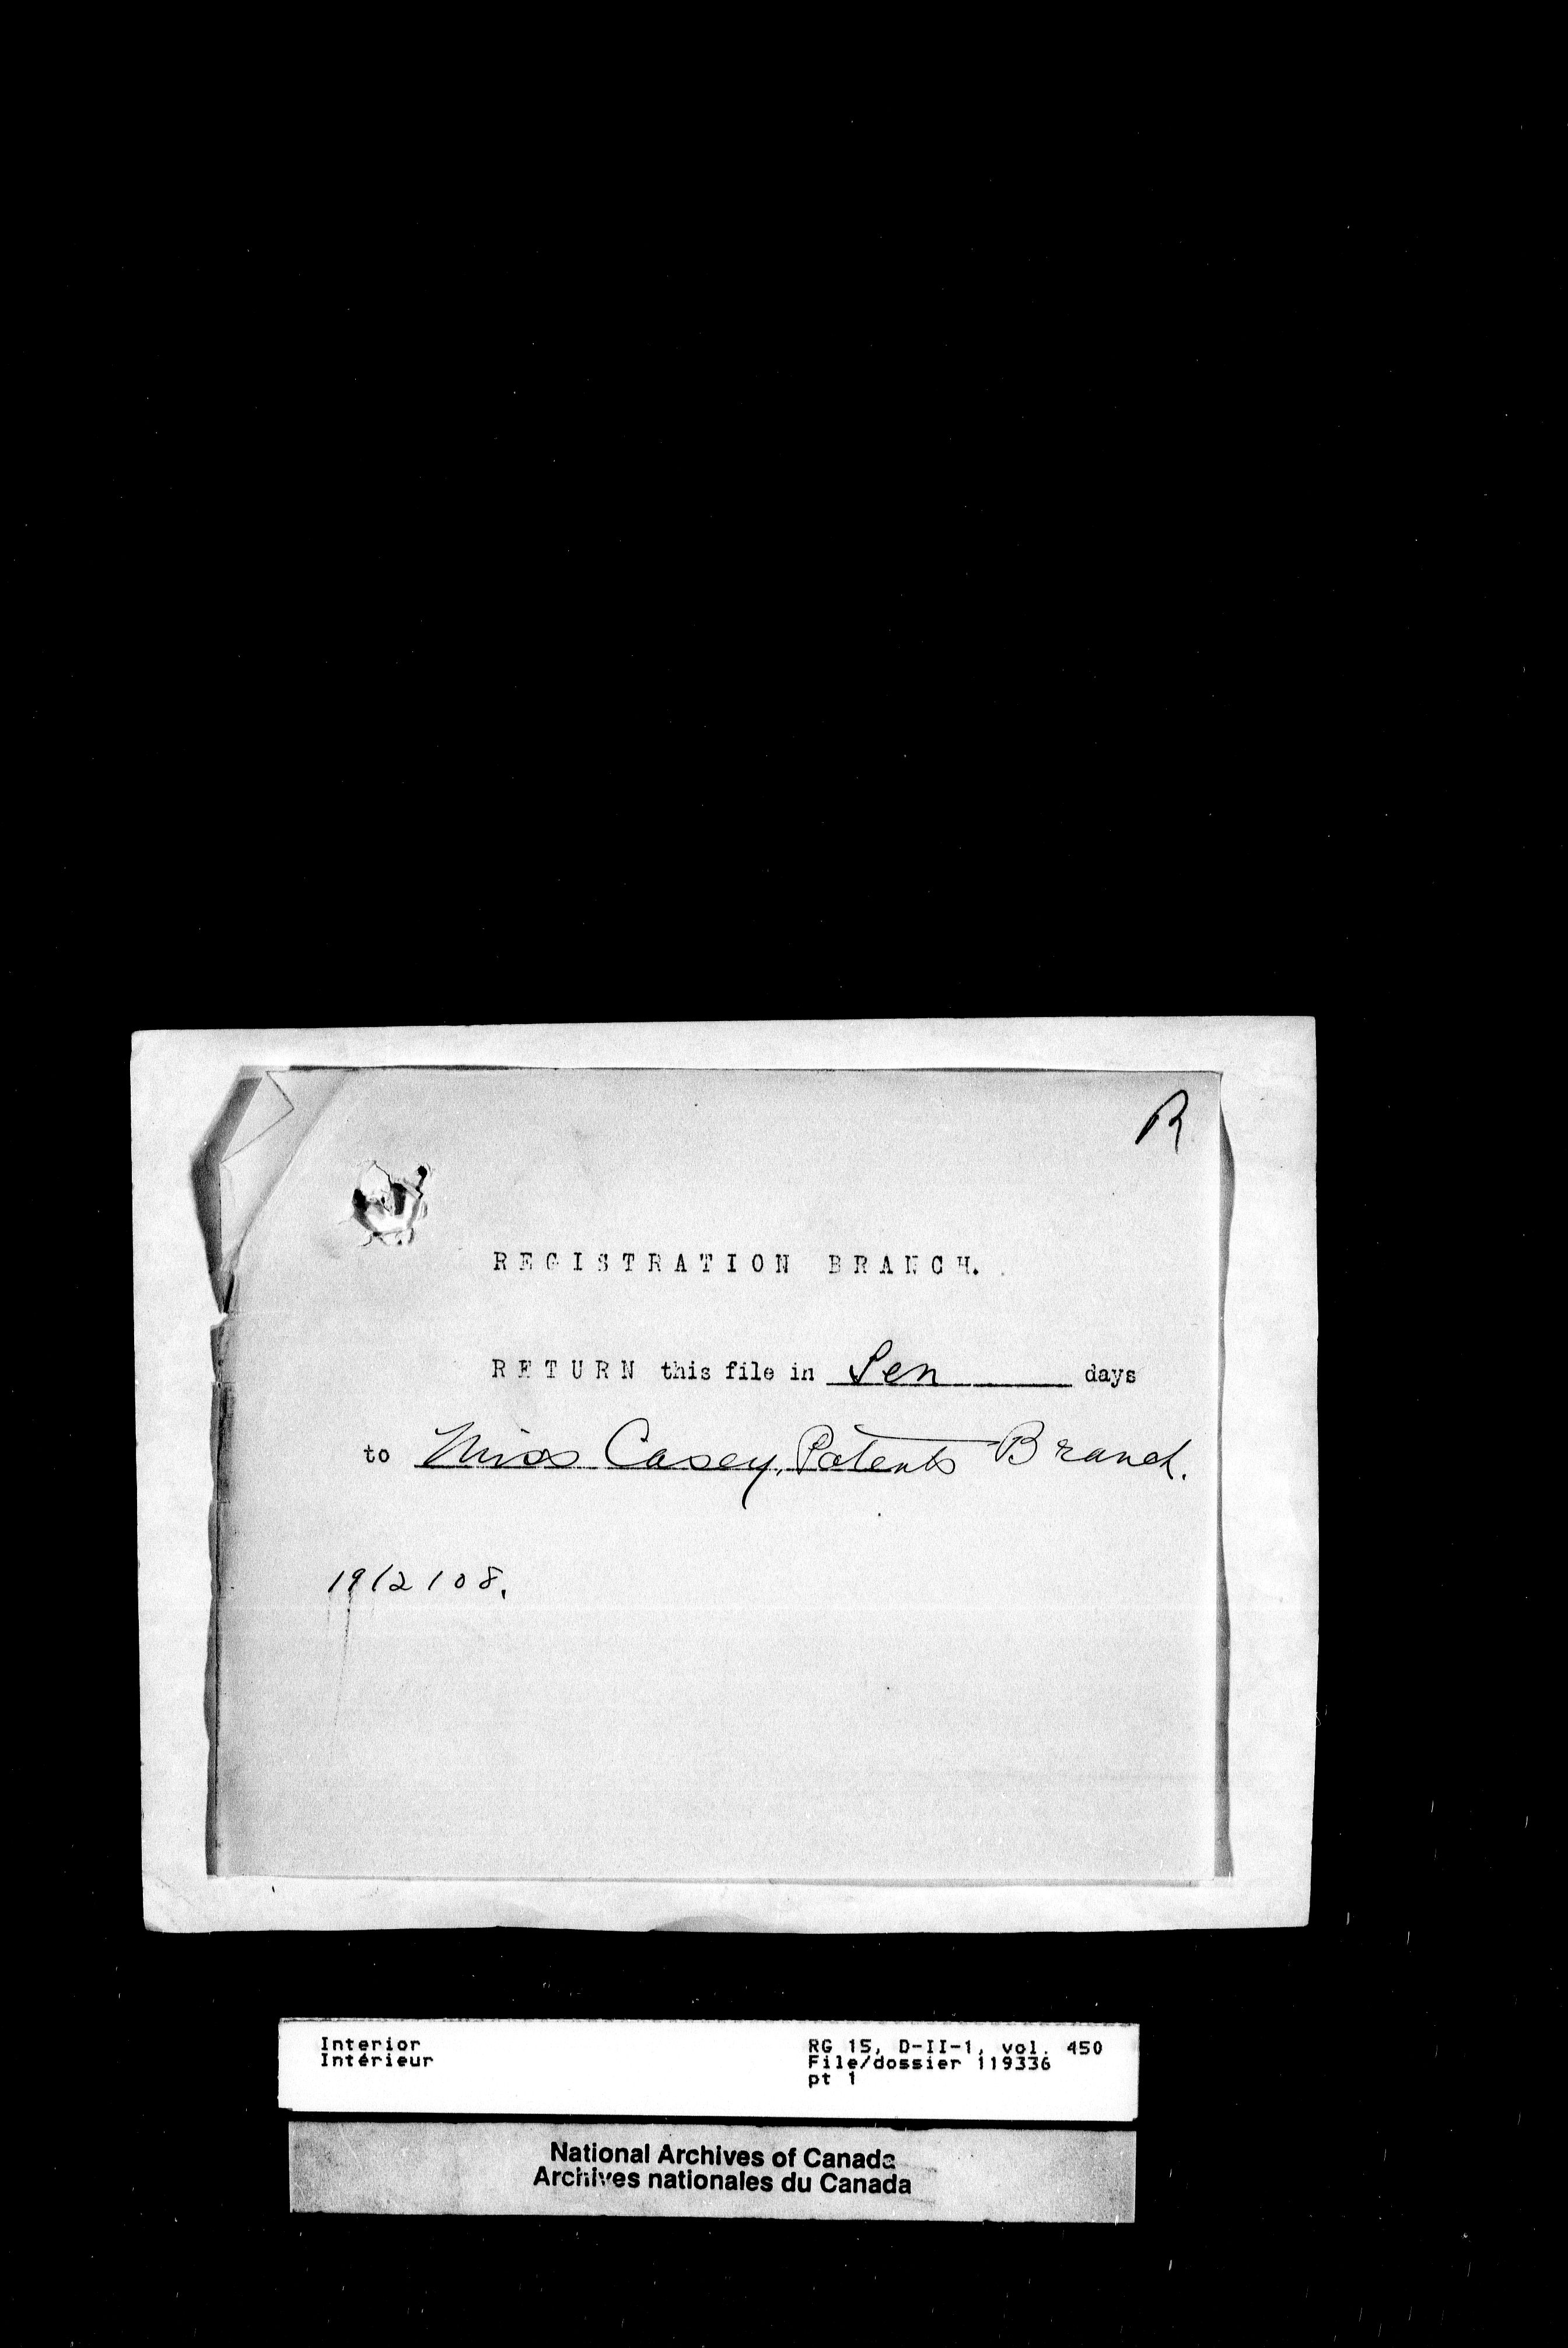 R
REGISTRATION BRANCH.
RETURN this file in Ten days
to Miss Casey, Patents Branch.
19/2/08.
Interior
Intérieur
RG 15, D-II-1, vol. 450
File/dossier 119336
pt 1
National Archives of Canada
Archives nationales du Canada